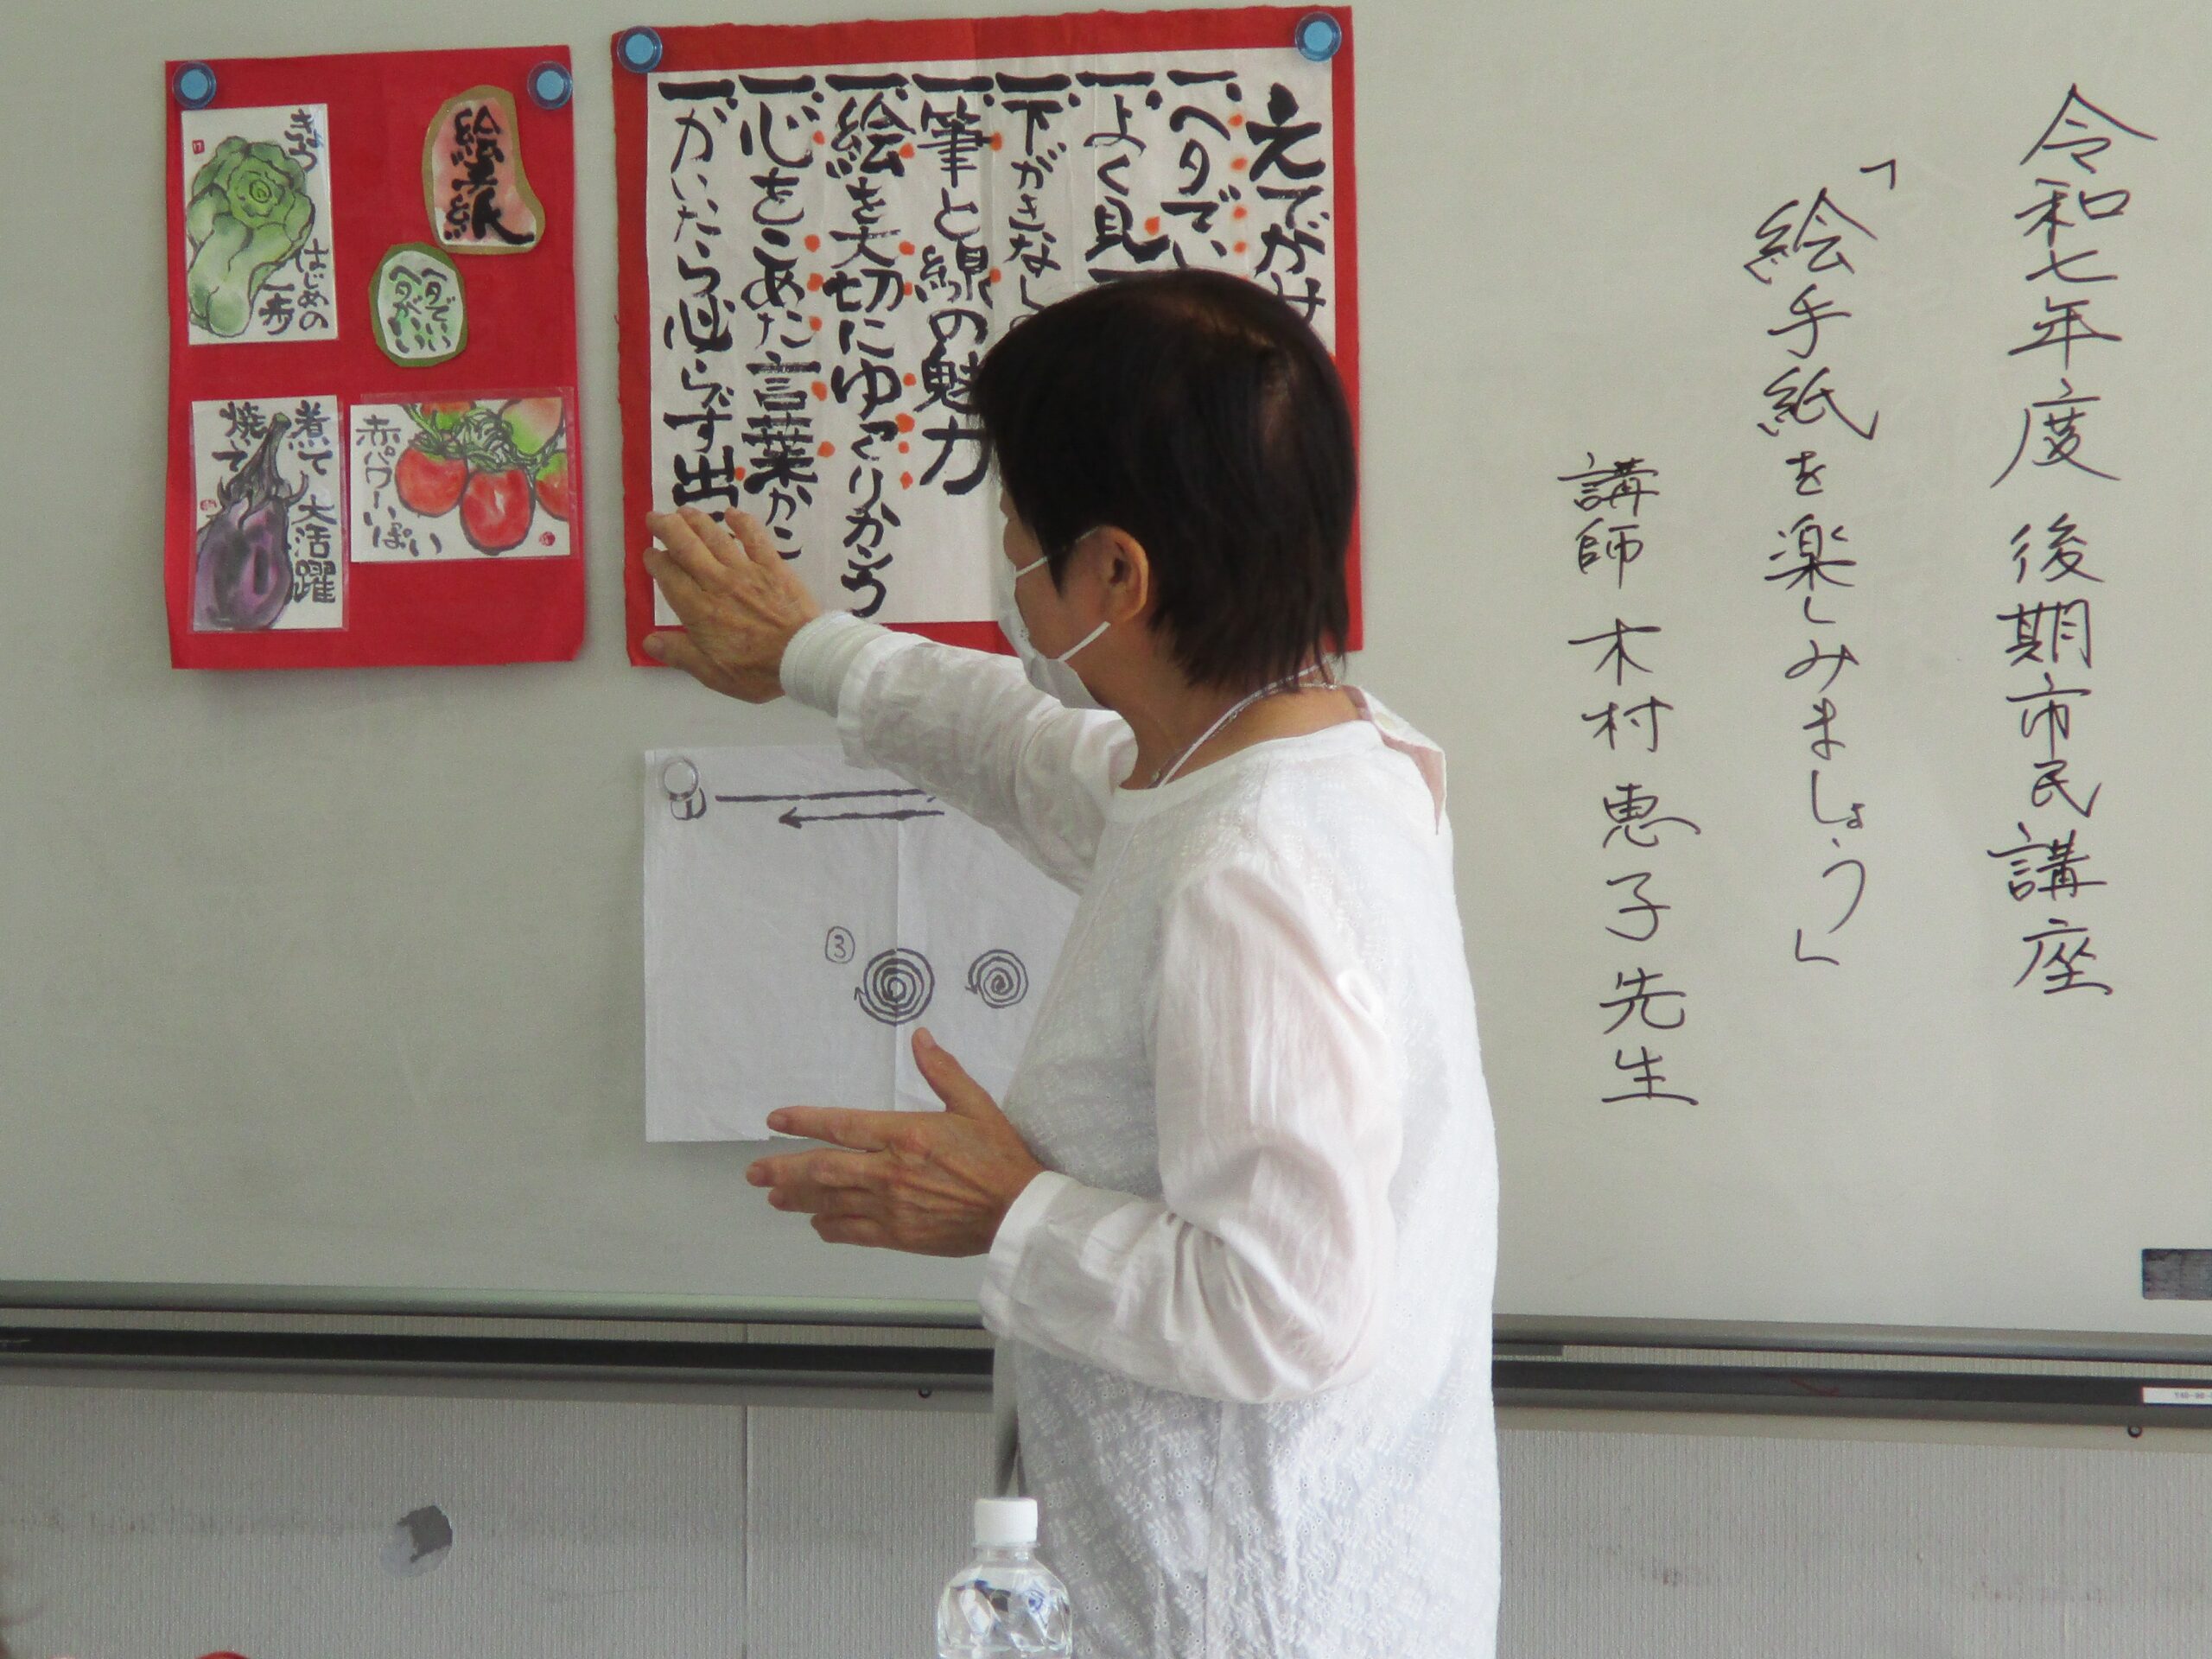 令和七年度 後期市民講座
「絵手紙を楽しみましょう」
講師 木村恵子先生
一、ヘタでい
一、よく見て
一、下がきなし
一、筆と線の魅力
一、絵を大切にゆっくりかこう
一、心をこめた言葉
一、かいたら必らず出
絵手紙
ヘタでいい
ヘタがいい
はじめの
一歩
煮て
焼いて
大活躍
赤パワーいっぱい
③